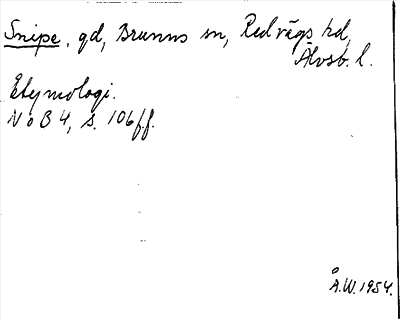 Snipe, gd, Brunns sn, Redvägs hd,
Älvsb. l.
Etymologi.
NoB 4, s. 106 ff.
Å.W. 1954.